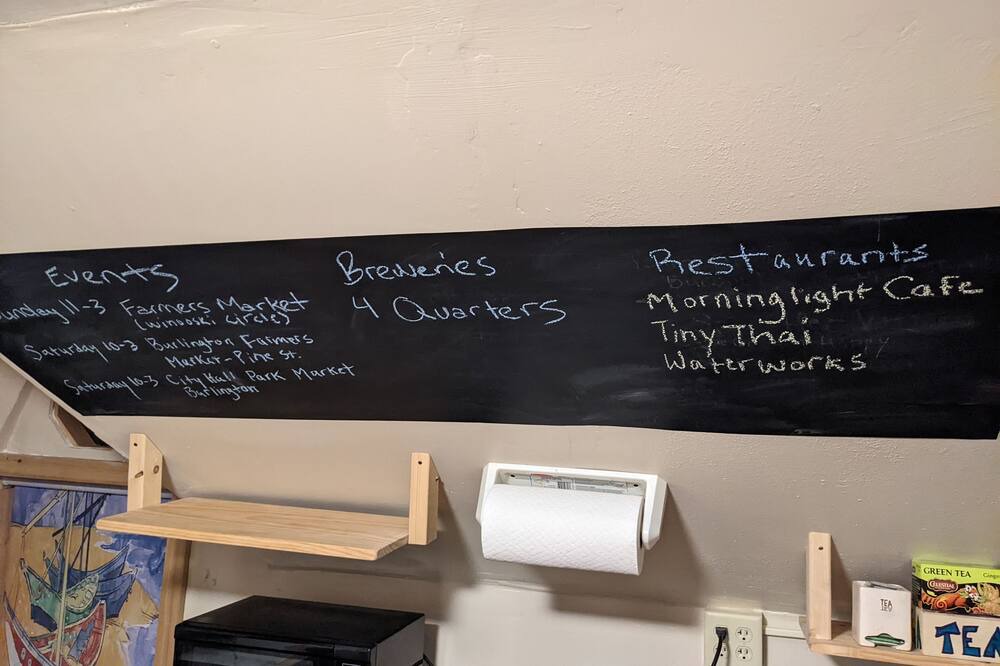 Events
unday 11-3 Farmers Market
(Winooski Circle)
Saturday 10-3 Burlington Farmers
Market-Pine St.
Saturday 10-3 City Hall Park Market
Burlington
Breweries
4 Quarters
Restaurants
Morninglight Cafe
Tiny Thai
Waterworks
TEA
GREEN TEA
CELESTIAL
TEA